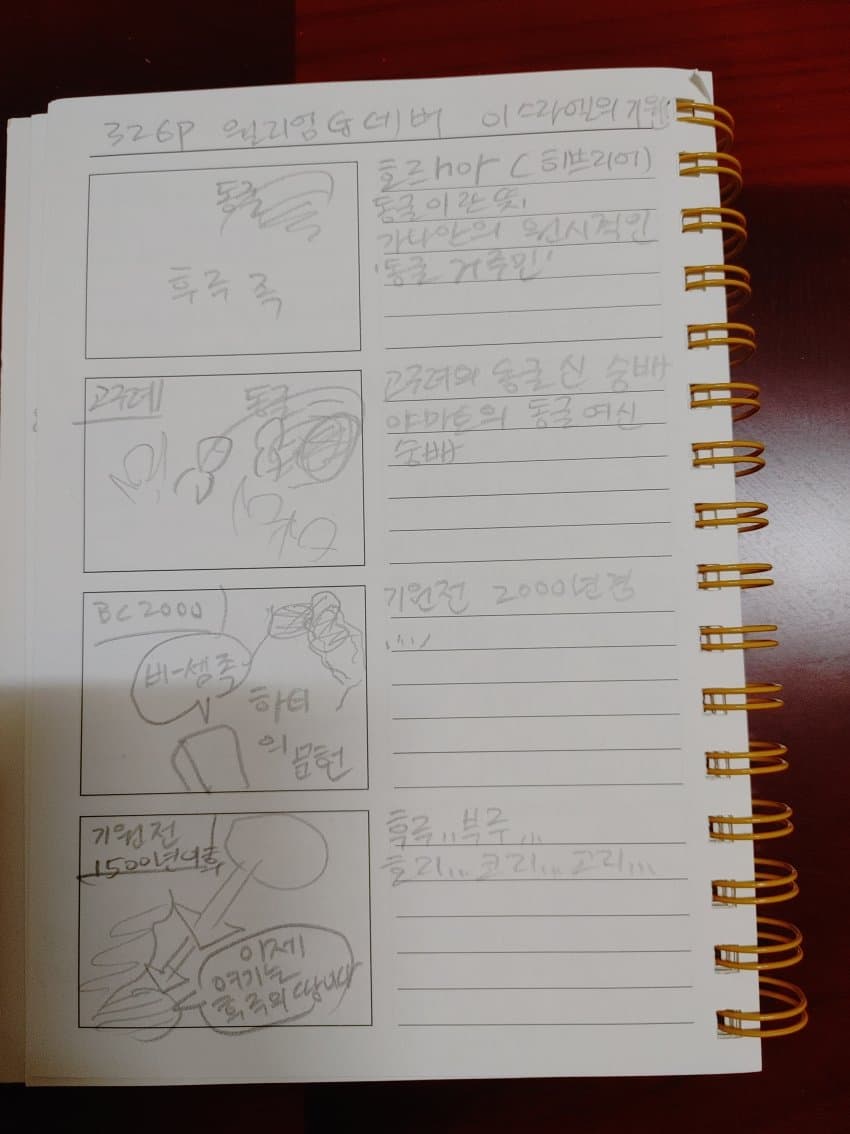 326P 윌리엄 G 데버 이스라엘의 기원
동굴
후루 족
호르h아 (히브리어)
동굴이란 뜻.
가나안의 원시적인
'동굴 거주민'
고구려
동굴
고구려의 동굴 신 숭배
야마토의 동굴 여신
숭배
BC2000
비-셈족
하티
의 문헌
기원전 2000년경
....
기원전
1500년이후
이제
여기는
후루의 땅이다
후루,,부루...
호리... 코리... 고리...